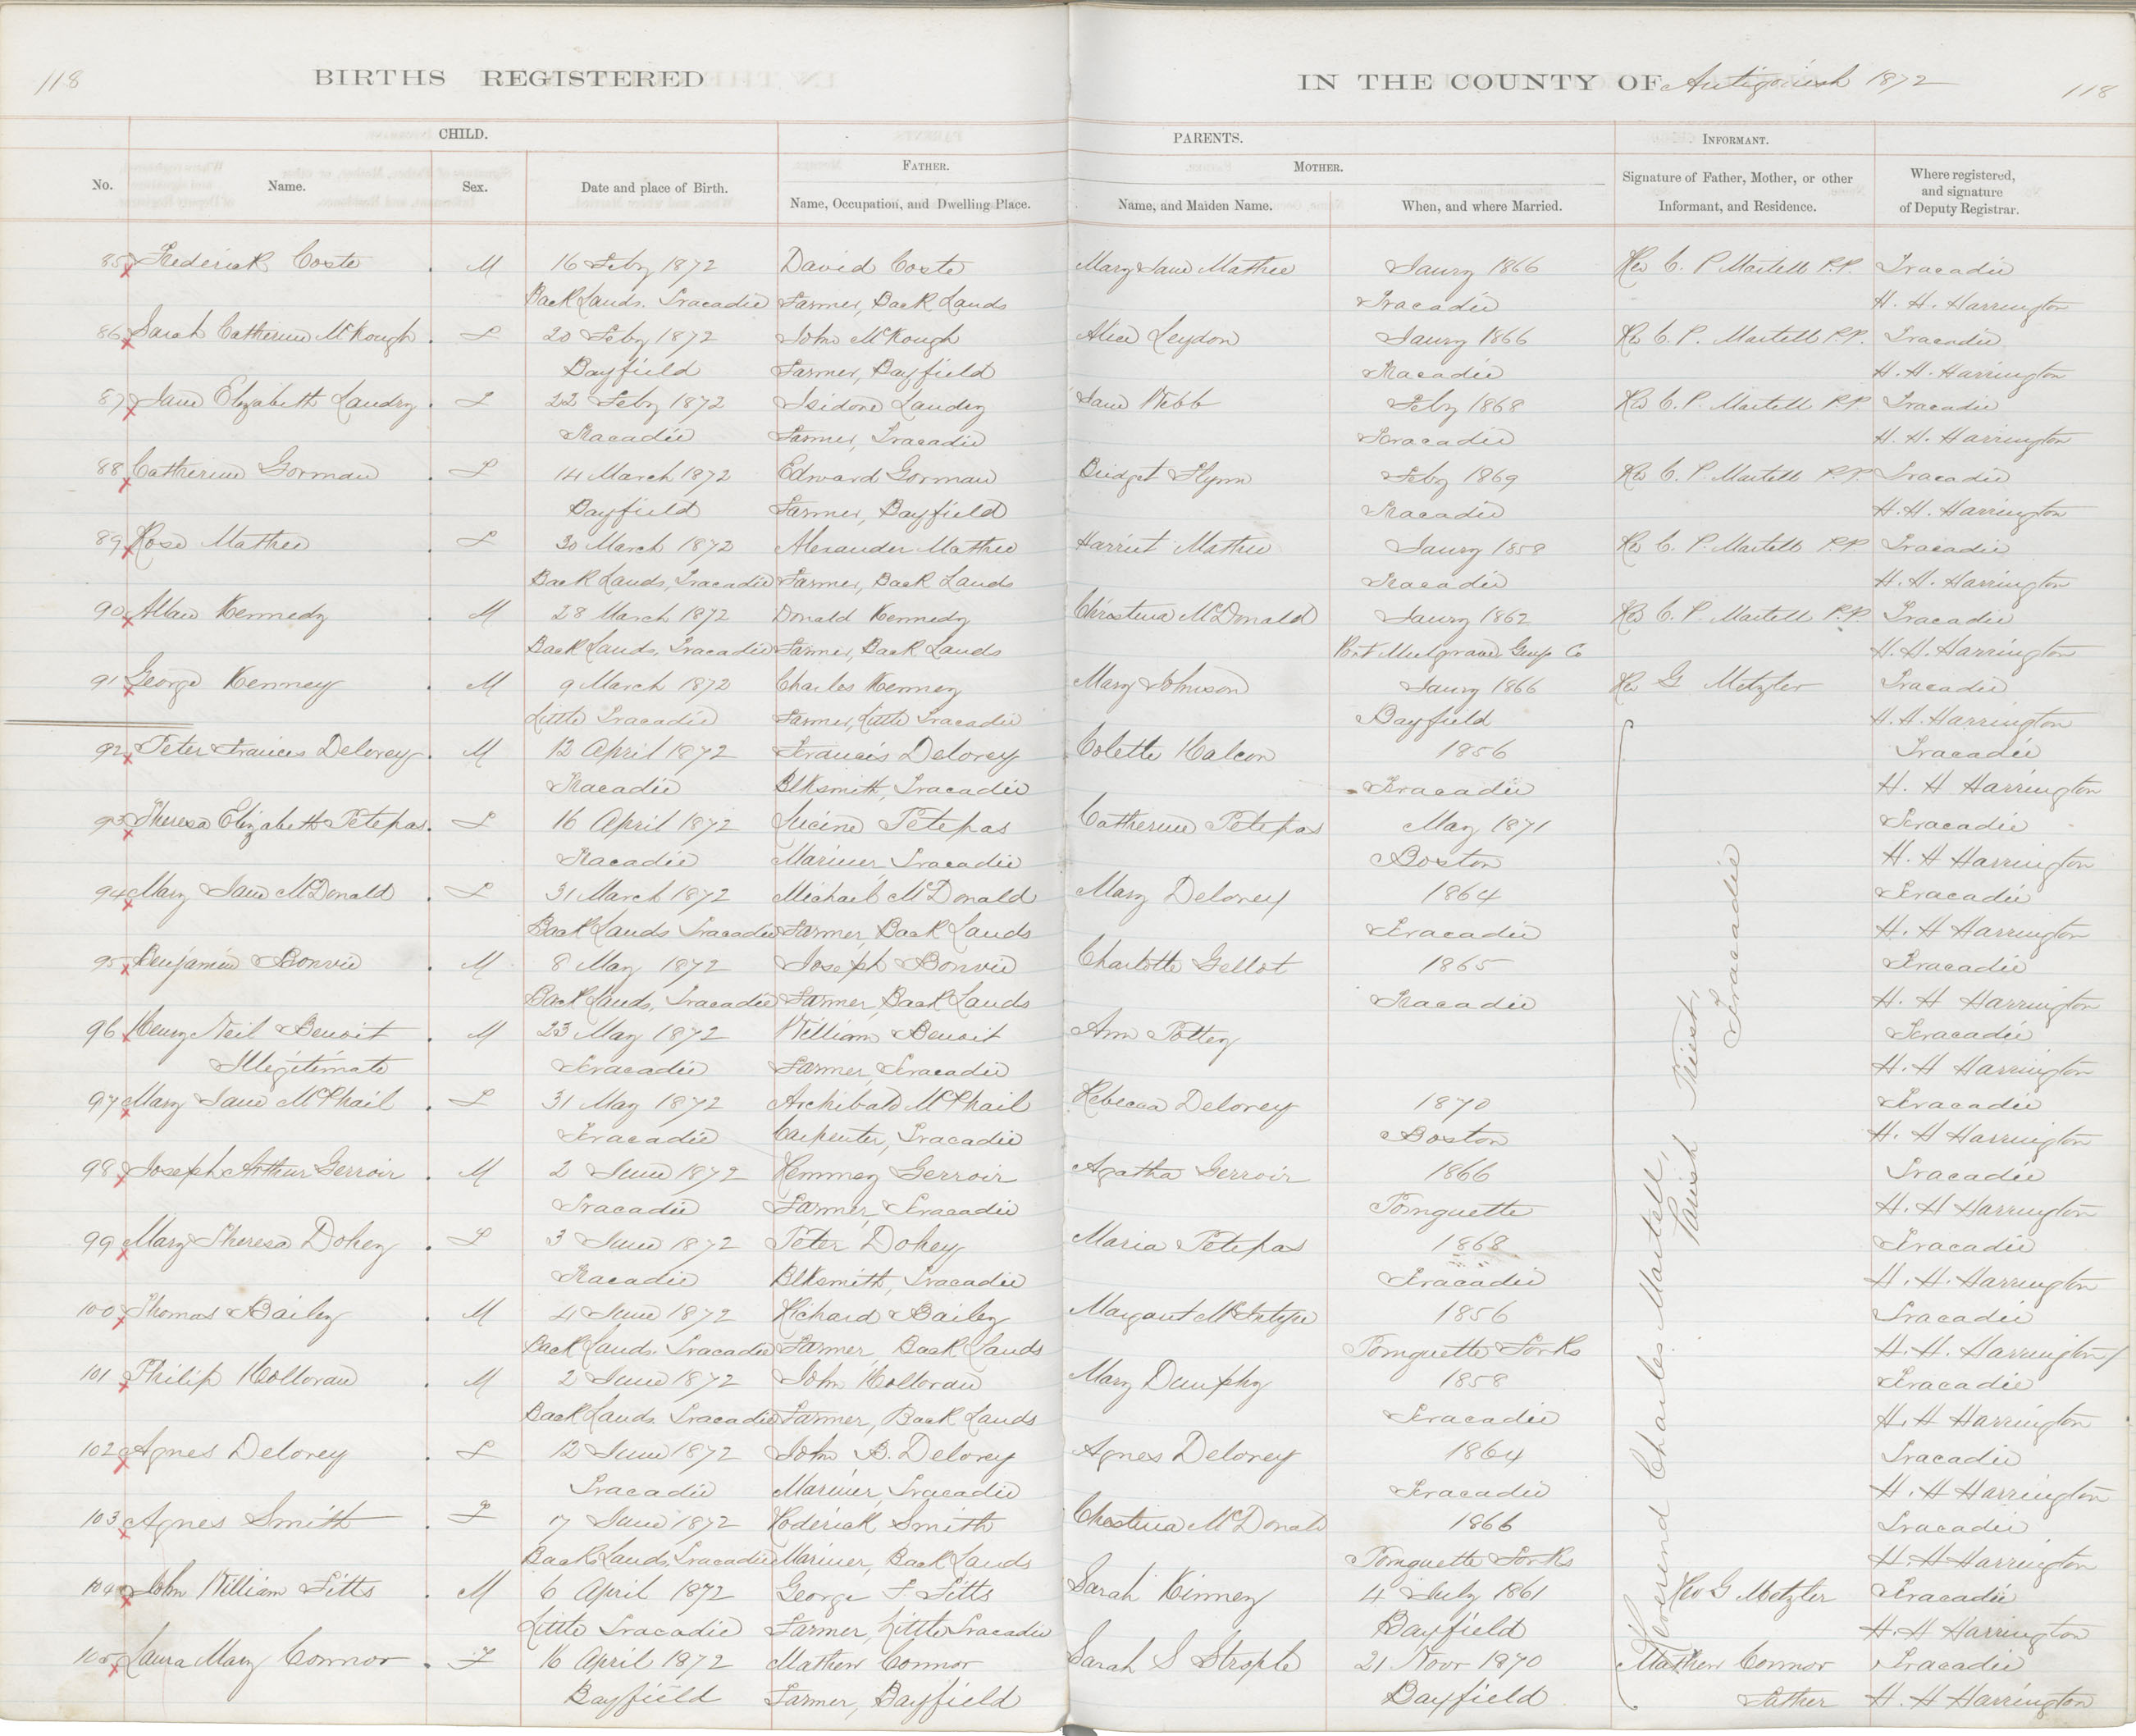 118 BIRTHS REGISTERED IN THE COUNTY OF Antigonish 1872 118
CHILD. PARENTS. INFORMANT.
FATHER. MOTHER.
No. Name. Sex. Date and place of Birth. Name, Occupation, and Dwelling Place. Name, and Maiden Name. When, and where Married. Signature of Father, Mother, or other Informant, and Residence. Where registered, and signature of Deputy Registrar.
85 Frederick Coste . M 16 Feby 1872 David Coste Mary Jane Mathee Jaury 1866 Rev C. P Martell P.P. Tracadie
Back Lands, Tracadie Farmer, Back Lands Tracadie H. H. Harrington
86 Sarah Catherine McKough . F 20 Feby 1872 John McKough Alice Leydon Jaury 1866 Rev C. P. Martell P.P. Tracadie
Bayfield Farmer, Bayfield Tracadie H. H. Harrington
87 Jane Elizabeth Landry . F 22 Feby 1872 Isidore Landry Jane Webb Feby 1868 Rev C. P. Martell P.P. Tracadie
Tracadie Farmer, Tracadie Tracadie H. H. Harrington
88 Catherine Gorman . F 14 March 1872 Edward Gorman Bridget Flynn Feby 1869 Rev C. P. Martell P.P. Tracadie
Bayfield Farmer, Bayfield Tracadie H. H. Harrington
89 Rose Mathee . F 30 March 1872 Alexander Mathee Harriet Mathee Jaury 1858 Rev C. P. Martell P.P. Tracadie
Back Lands, Tracadie Farmer, Back Lands Tracadie H. H. Harrington
90 Allan Kennedy . M 28 March 1872 Donald Kennedy Christina McDonald Jaury 1862 Rev C. P. Martell P.P. Tracadie
Back Lands, Tracadie Farmer, Back Lands Port Mulgrave Guys Co H. H. Harrington
91 George Kenney . M 9 March 1872 Charles Kenney Mary Johnson Jaury 1866 Rev G Metzler Tracadie
Little Tracadie Farmer, Little Tracadie Bayfield H. H. Harrington
92 Peter Frances Delorey . M 12 April 1872 Francis Delorey Colette Halcon 1856 Tracadie
Tracadie Blksmith, Tracadie Tracadie H. H Harrington
93 Theresa Elizabeth Petepas . F 16 April 1872 Lucine Petepas Catherine Petepas May 1871 Tracadie
Tracadie Mariner, Tracadie Boston H. H Harrington
94 Mary Jane McDonald . F 31 March 1872 Michael McDonald Mary Delorey 1864 Tracadie
Back Lands Tracadie Farmer, Back Lands Tracadie H. H Harrington
95 Benjamin Bonvie . M 8 May 1872 Joseph Bonvie Charlotte Gellot 1865 Tracadie
Back Lands, Tracadie Farmer, Back Lands Tracadie H. H Harrington
96 Henry Neil Benoit . M 23 May 1872 William Benoit Ann Pottey Tracadie
Illegitimate Tracadie Farmer, Tracadie H. H Harrington
97 Mary Jane McPhail . F 31 May 1872 Archibald McPhail Rebecca Delorey 1870 Tracadie
Tracadie Carpenter, Tracadie Boston H. H Harrington
98 Joseph Arthur Gerroir . M 2 June 1872 Hemmey Gerroir Agatha Gerroir 1866 Tracadie
Tracadie Farmer, Tracadie Pomquette H. H Harrington
99 Mary Theresa Dohey . F 3 June 1872 Peter Dohey Maria Petepas 1868 Tracadie
Tracadie Blksmith, Tracadie Tracadie H. H. Harrington
100 Thomas Bailey . M 4 June 1872 Richard Bailey Margaret McIntyre 1856 Tracadie
Back Lands. Tracadie Farmer, Back Lands Pomquette Forks H. H. Harrington
101 Philip Holloran . M 2 June 1872 John Holloran Mary Dumphy 1858 Tracadie
Back Lands. Tracadie Farmer, Back Lands Tracadie H. H Harrington
102 Agnes Delorey . F 12 June 1872 John B. Delorey Agnes Delorey 1864 Tracadie
Tracadie Mariner, Tracadie Tracadie H. H Harrington
103 Agnes Smith . F 17 June 1872 Roderick Smith Chostina McDonald 1866 Tracadie
Back Lands, Tracadie Mariner, Back Lands Pomquette Forks H. H Harrington
104 John William Fitts . M 6 April 1872 George F Fitts Sarah Kinney 4 July 1861 Rev G Metzler Tracadie
Little Tracadie Farmer, Little Tracadie Bayfield H. H Harrington
105 Laura Mary Connor . F 16 April 1872 Mathew Connor Sarah S Strople 21 Novr 1870 Mathew Connor Tracadie
Bayfield Farmer, Bayfield Bayfield Father H. H Harrington
Reverend Charles Martell,
Parish Priest,
Tracadie